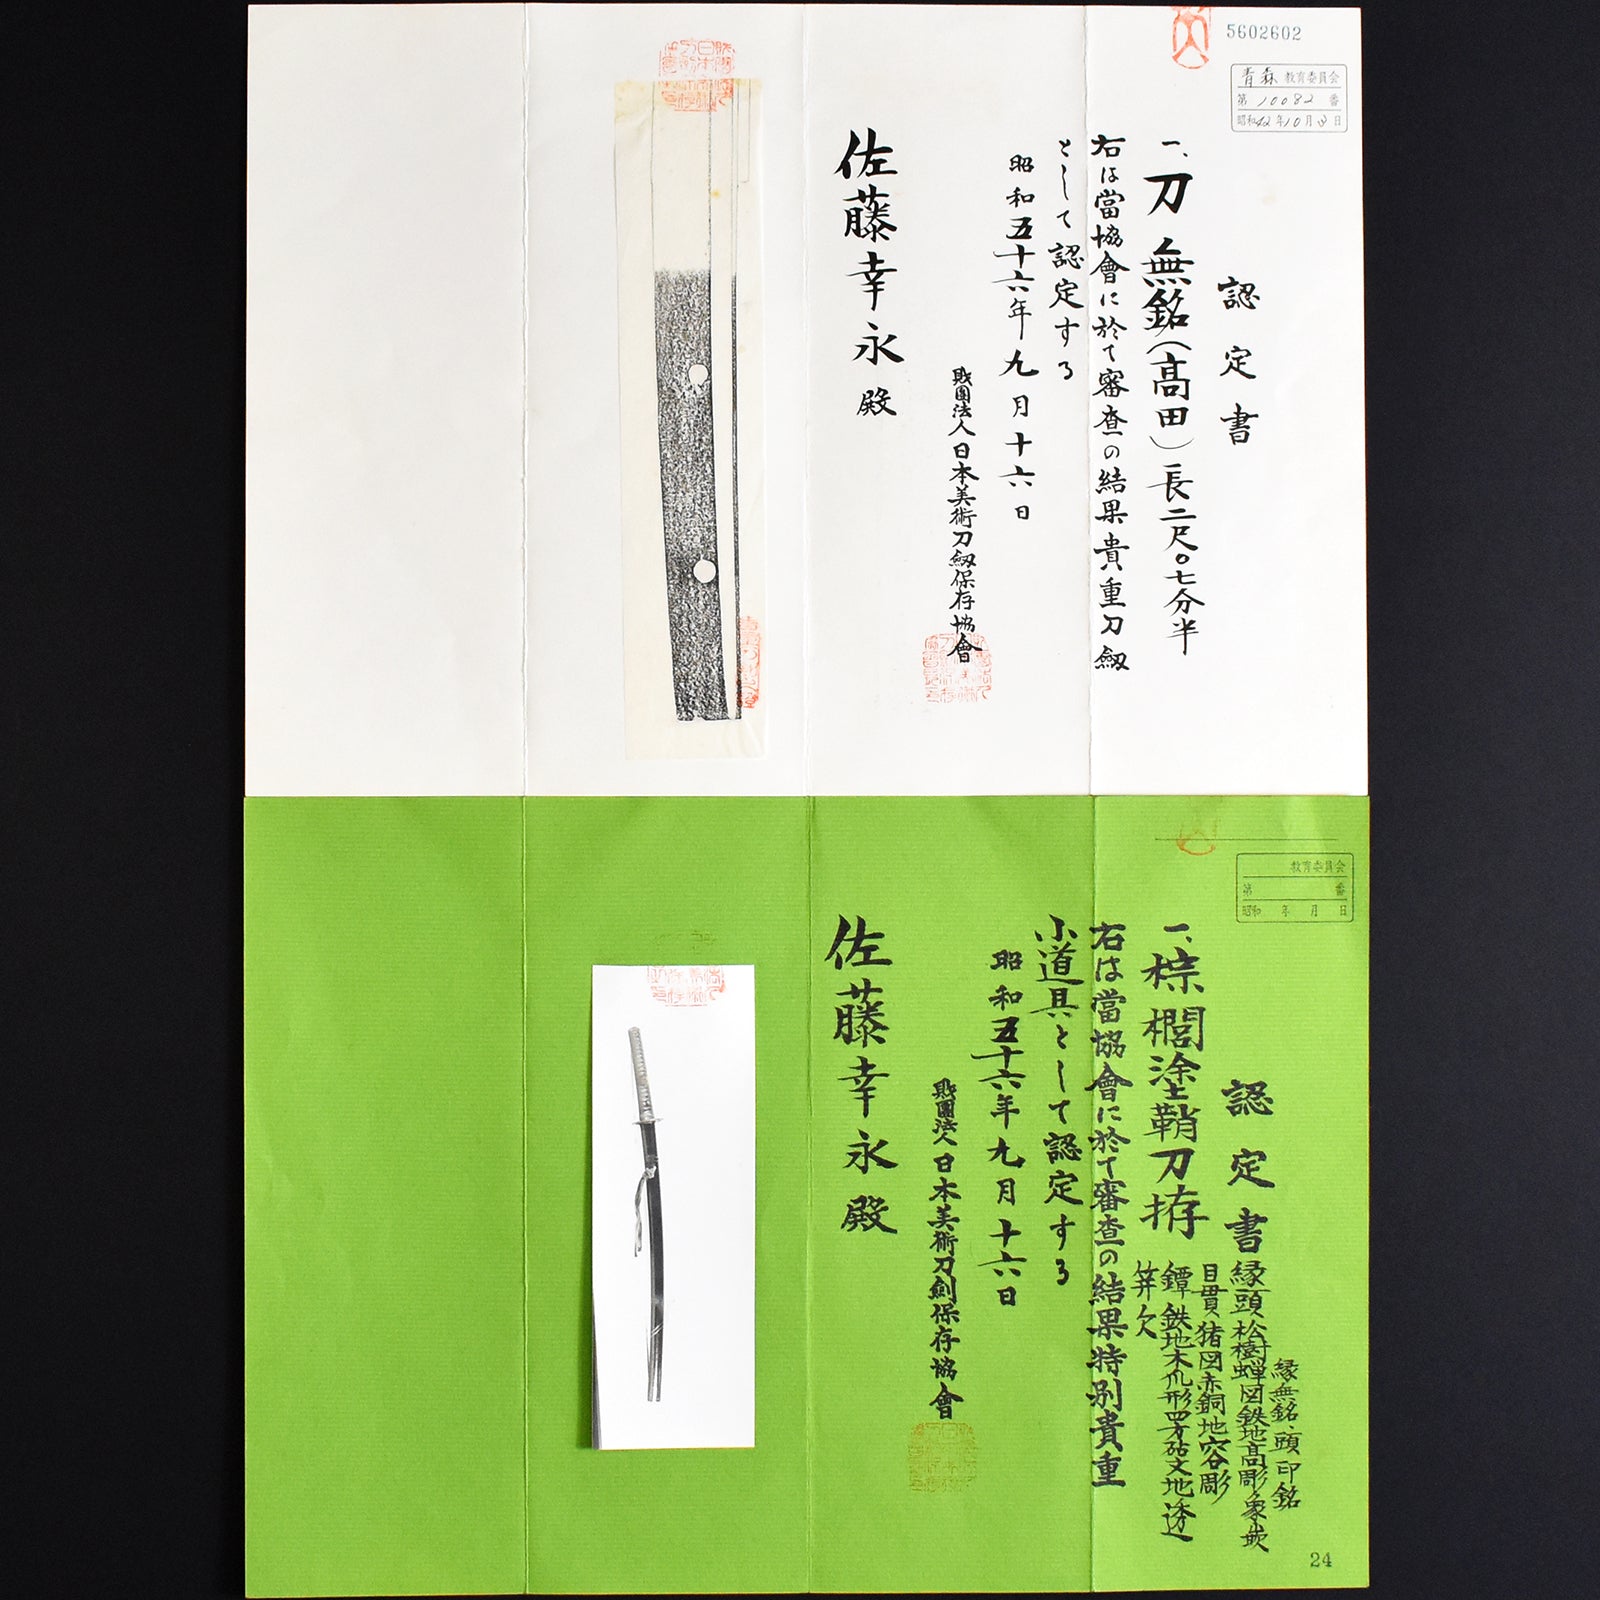 5602602
青森 教育委員会
第 10082 番
昭和42年10月3日
認定書
一、刀 無銘(高田)長二尺〇七分半
右は當協會に於て審査の結果貴重刀劔
として認定する
昭和五十六年九月十六日
財團法人日本美術刀劔保存協會
佐藤幸永殿
教育委員会
第 番
昭和 年 月 日
認定書
一、棕櫚塗鞘刀拵
縁無銘・頭印銘
縁頭 松樹蝉図鉄地高彫象嵌
目貫 猪図赤銅地容彫
鐔 鉄地木瓜形四方砧文地透
笄欠
右は當協會に於て審査の結果特別貴重
小道具として認定する
昭和五十六年九月十六日
財團法人日本美術刀劍保存協會
佐藤幸永殿
24